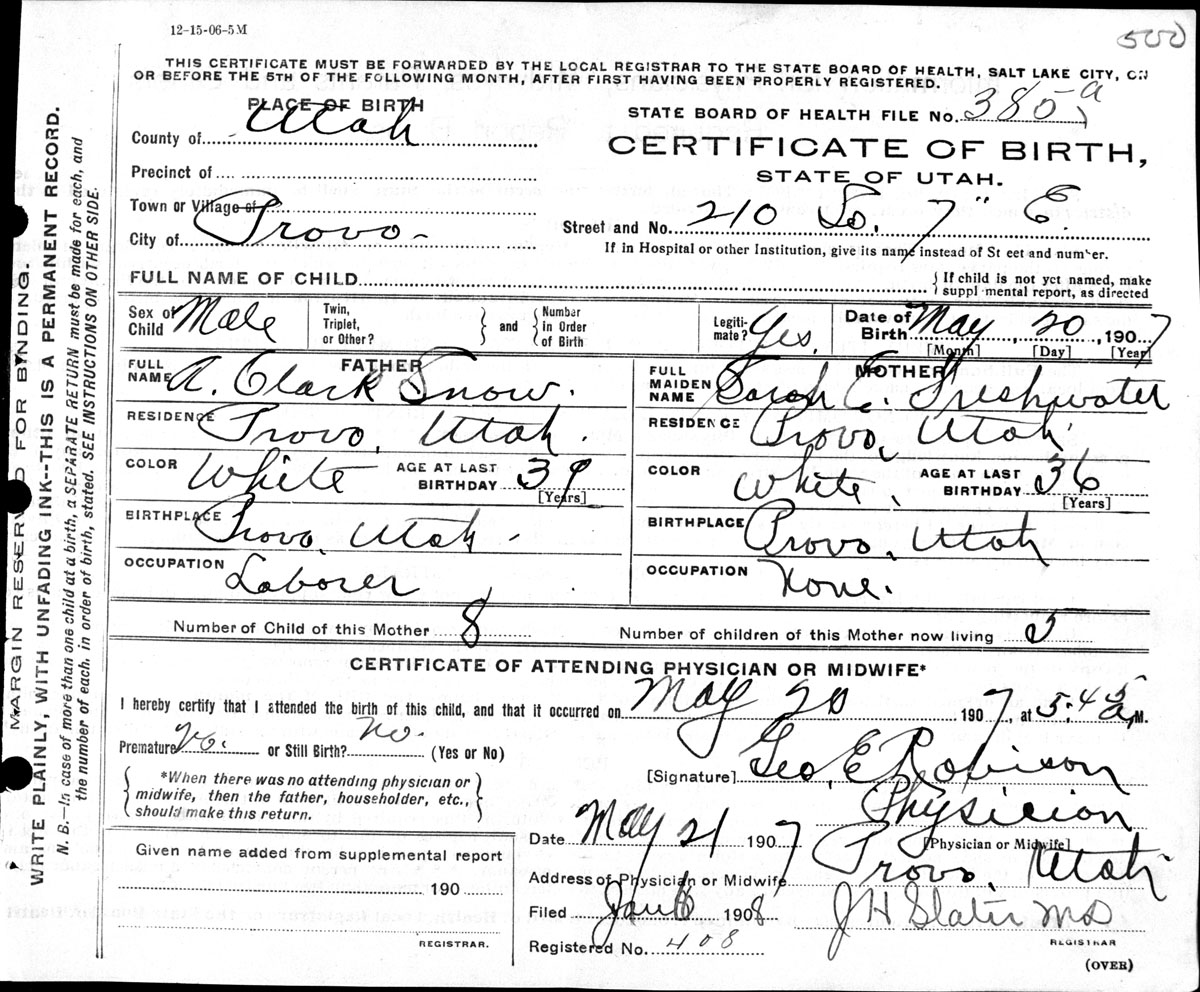 12-15-06-5M
500
THIS CERTIFICATE MUST BE FORWARDED BY THE LOCAL REGISTRAR TO THE STATE BOARD OF HEALTH, SALT LAKE CITY, ON
OR BEFORE THE 5TH OF THE FOLLOWING MONTH, AFTER FIRST HAVING BEEN PROPERLY REGISTERED.
PLACE OF BIRTH
County of Utah
Precinct of
Town or Village of
City of Provo
STATE BOARD OF HEALTH FILE No. 385 a
CERTIFICATE OF BIRTH,
STATE OF UTAH.
Street and No. 210 So. 7" E.
If in Hospital or other Institution, give its name instead of St eet and number.
FULL NAME OF CHILD
If child is not yet named, make
suppl mental report, as directed
Sex of Child Male
Twin, Triplet, or Other?
and
Number in Order of Birth
Legitimate? Yes.
Date of Birth May 20, 1907
[Month] [Day] [Year]
FATHER
FULL NAME A. Clark Snow.
RESIDENCE Provo, Utah.
COLOR White
AGE AT LAST BIRTHDAY 39
[Years]
BIRTHPLACE Provo, Utah -
OCCUPATION Laborer
MOTHER
FULL MAIDEN NAME Sarah E. Freshwater
RESIDENCE Provo, Utah
COLOR White.
AGE AT LAST BIRTHDAY 36
[Years]
BIRTHPLACE Provo, Utah
OCCUPATION None.
Number of Child of this Mother 8
Number of children of this Mother now living 5
CERTIFICATE OF ATTENDING PHYSICIAN OR MIDWIFE*
I hereby certify that I attended the birth of this child, and that it occurred on May 20 1907, at 5:45 a M.
Premature No. or Still Birth? No. (Yes or No)
*When there was no attending physician or
midwife, then the father, householder, etc.,
should make this return.
[Signature] Geo. E. Robison
Physician
[Physician or Midwife]
Date May 21 1907
Address of Physician or Midwife, Provo, Utah
Filed Jan 6 1908
J H Slater MD
REGISTRAR
Registered No. 408
(OVER)
Given name added from supplemental report
190
REGISTRAR.
MARGIN RESERV D FOR BINDING.
WRITE PLAINLY, WITH UNFADING INK--THIS IS A PERMANENT RECORD.
N. B.—In case of more than one child at a birth, a SEPARATE RETURN must be made for each, and
the number of each, in order of birth, stated. SEE INSTRUCTIONS ON OTHER SIDE.